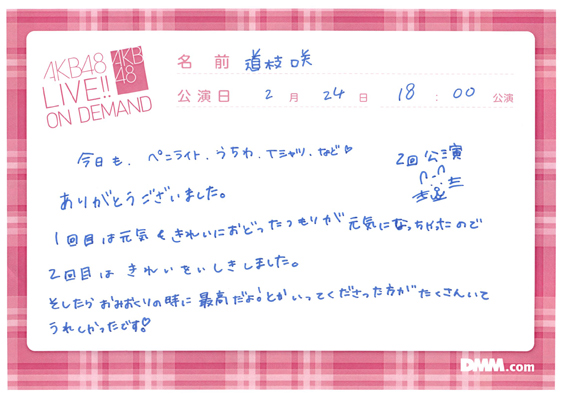 AKB48
LIVE!!
ON DEMAND
AKB
48
名前 道枝咲
公演日 2月24日 18:00公演
今日も、ペンライト、うちわ、Tシャツ、など♡
ありがとうございました。
2回公演
1回目は元気&きれいにおどったつもりが 元気になっちゃったので
2回目は きれいをいしきしました。
そしたらおみおくりの時に最高だよ!とかいってくださった方がたくさんいて
うれしかったです!♡
DMM.com